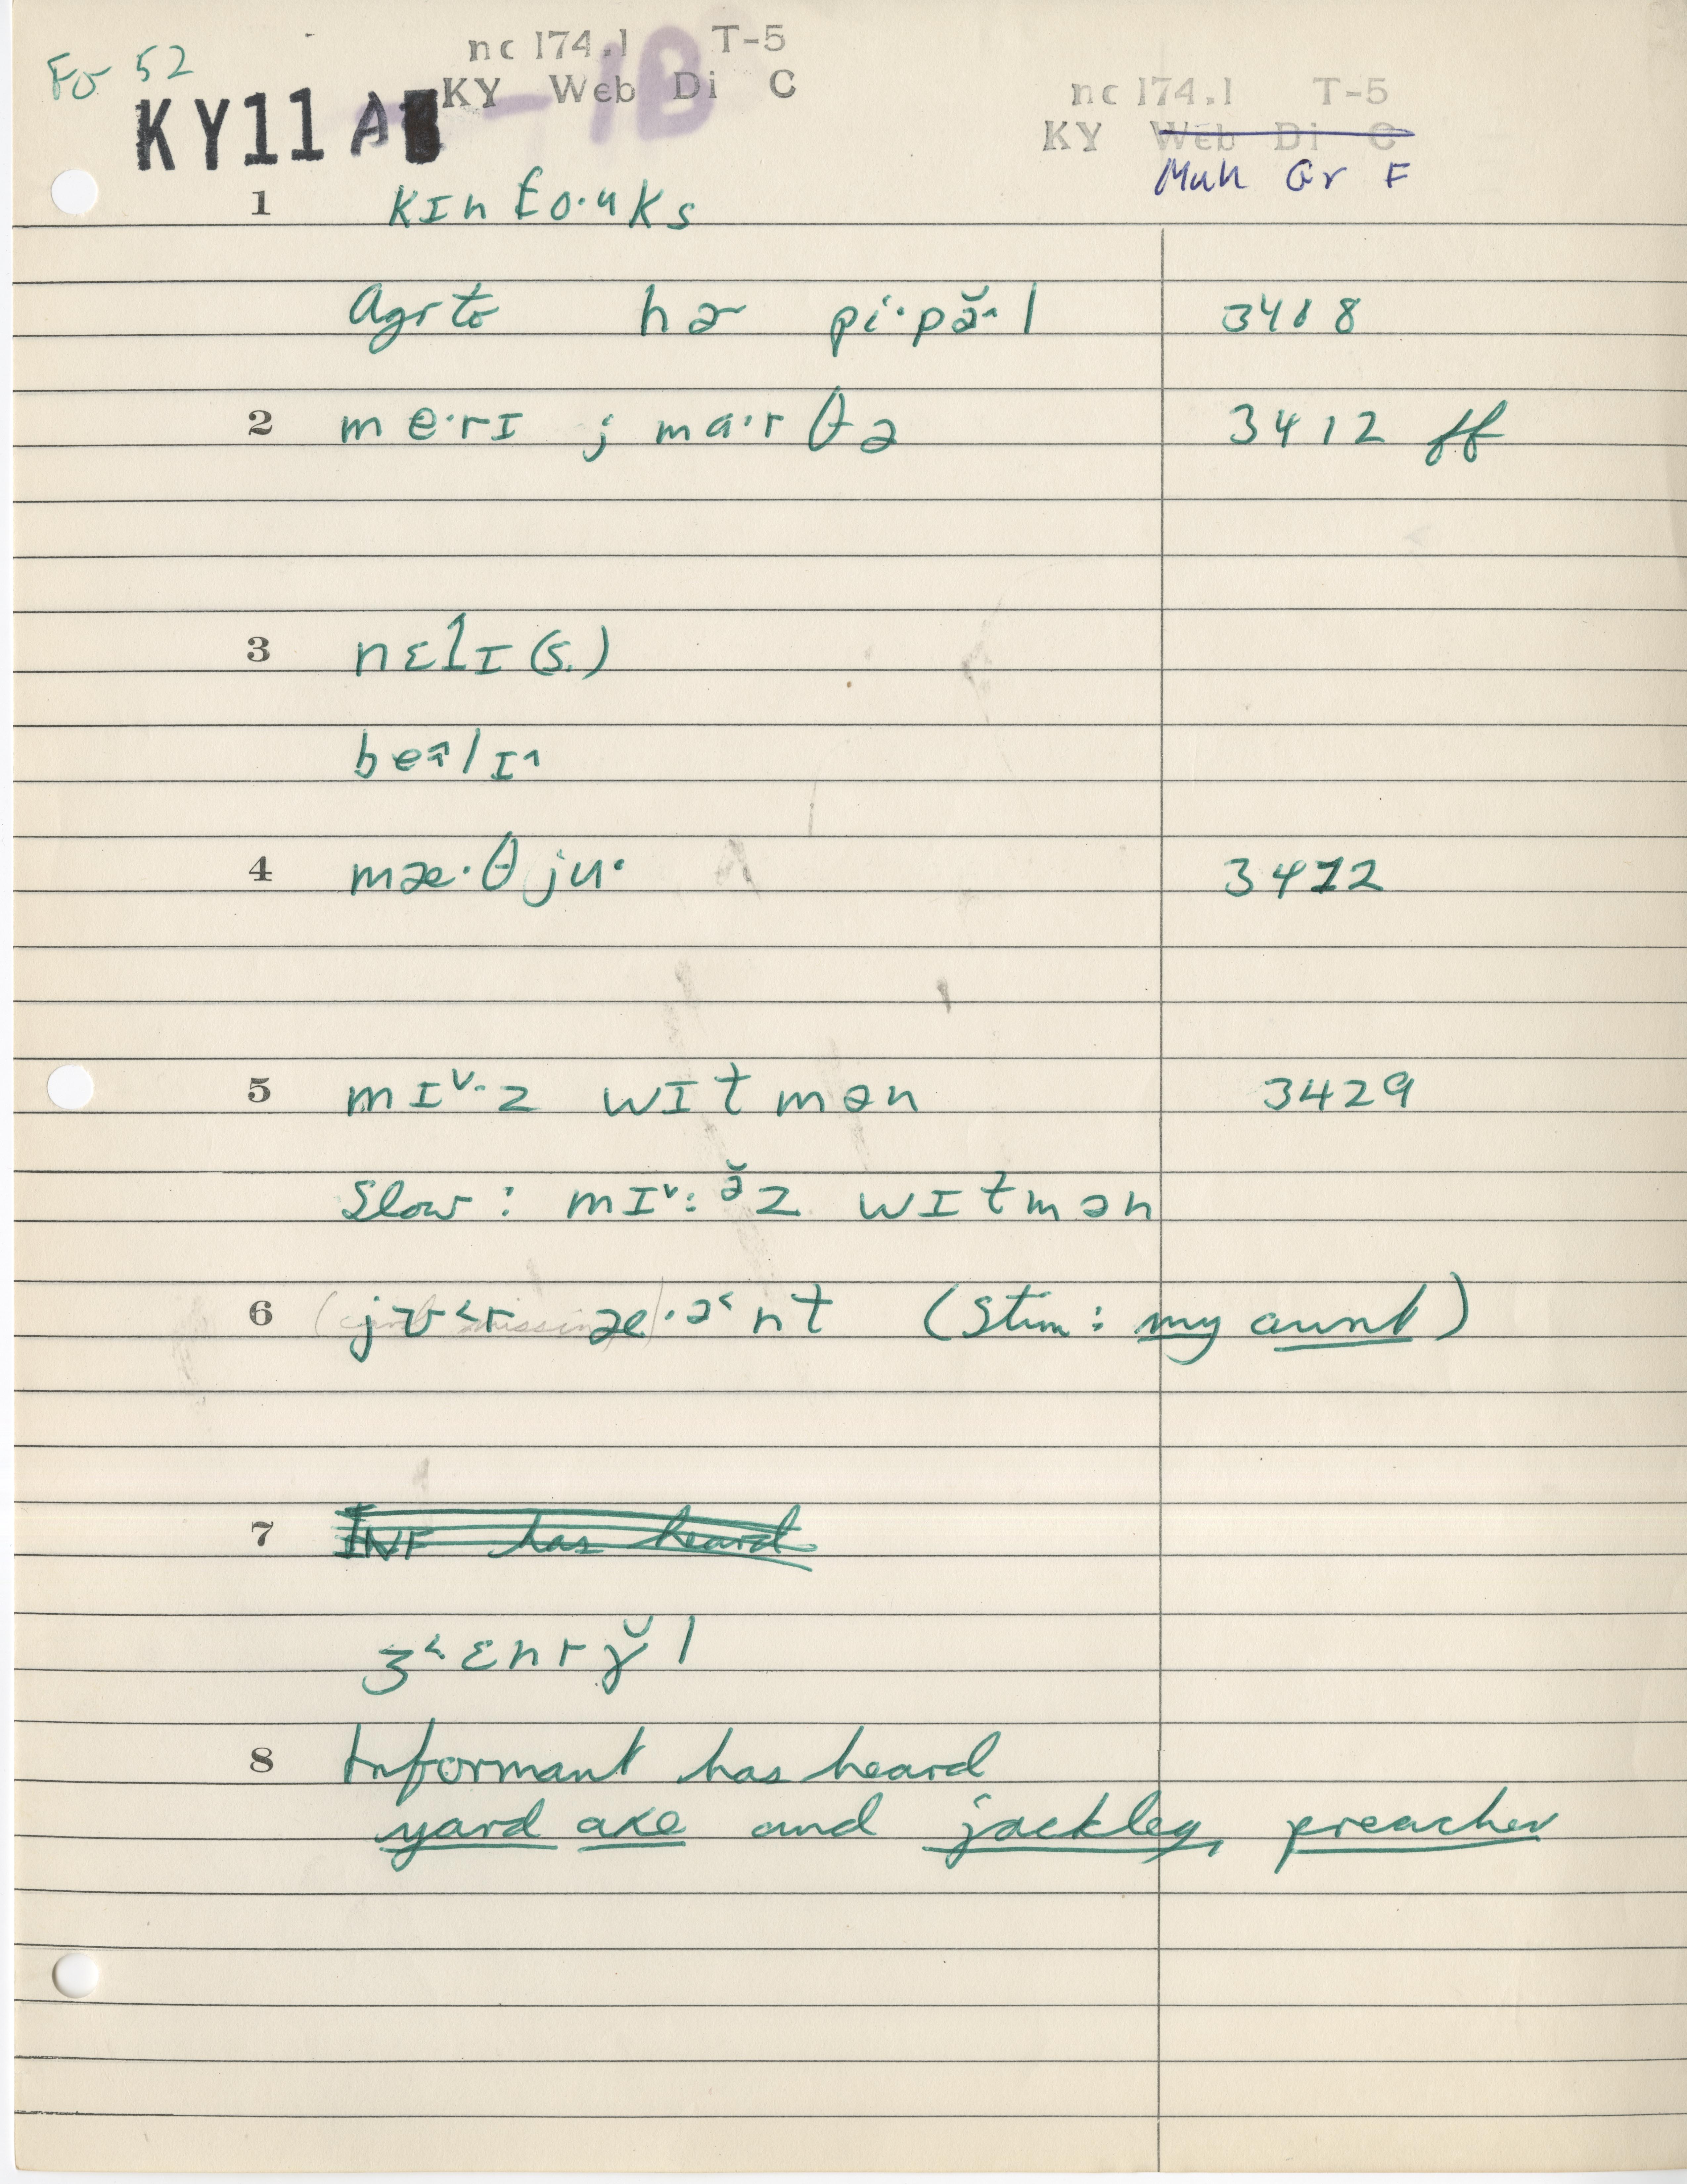 Fo 52
nc 174.1 T-5
KY Web Di C
nc 174.1 T-5
KY Web Di C
KY11A
Muh Gr F
1 kɪnfo·ʊks
Agrto hɚ pi·pə̆^l 3418
2 me·rɪ ; ma·rθə 3412 ff
3 nɛlɪ (s.)
lɪ^
4 mæ·θju· 3412
5 mɪˇ·z wɪtmən 3429
Slow: mɪˇ:ə̆z wɪtmən
6 æ·ə˂nt (Stim: my aunt)
7 INF has heard
8 Informant has heard
yard axe and jackleg preacher